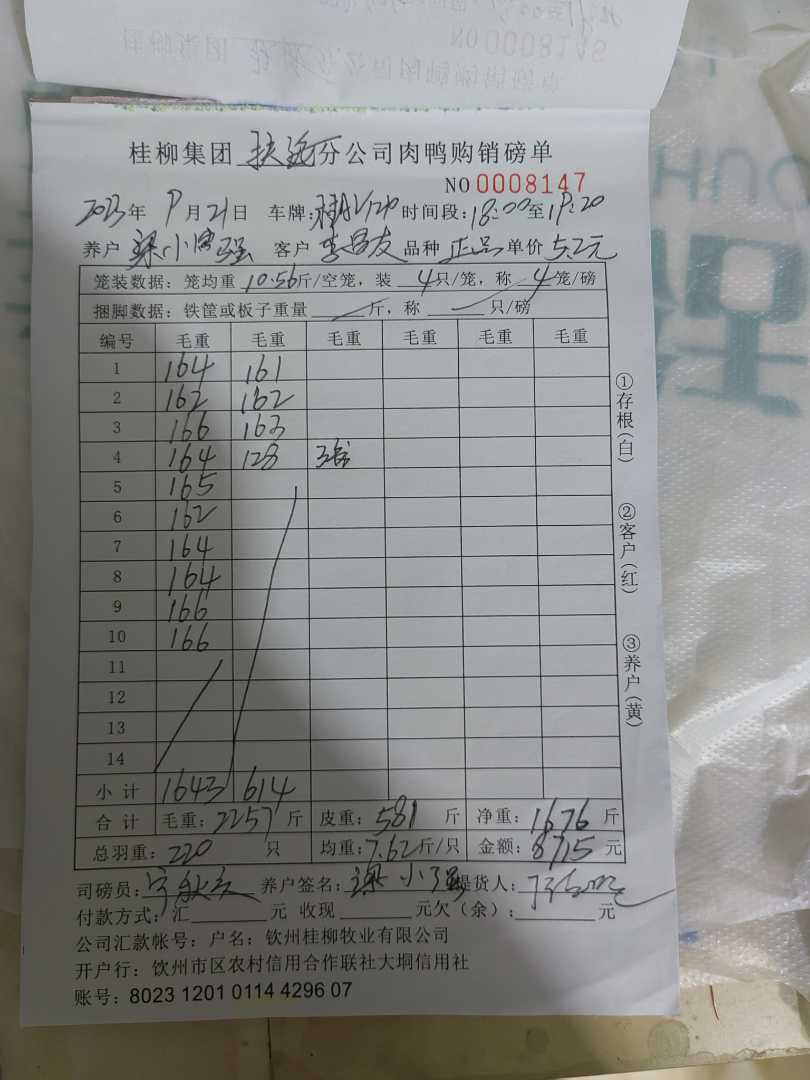 NO 0008145
桂柳集团 扶绥 分公司肉鸭购销磅单
NO 0008147
2023年 9月21日 车牌: 时间段:18:00至19:20
养户 梁小强 客户 李昌友 品种 正品 单价 5.2元
笼装数据: 笼均重 10.56斤/空笼，装 4只/笼，称 4笼/磅
捆脚数据: 铁筐或板子重量 斤，称 只/磅
编号 毛重 毛重 毛重 毛重 毛重 毛重
1 164 161
2 162 162
3 166 163
4 164 128 3笼
5 165
6 162
7 164
8 164
9 166
10 166
11
12
13
14
小计 1643 614
合计 毛重: 2257斤 皮重: 581斤 净重: 1676斤
总羽重: 220 只 均重: 7.62斤/只 金额: 8715元
司磅员: 养户签名: 梁小强 提货人:
付款方式: 汇 元 收现 元欠（余）: 元
公司汇款帐号: 户名: 钦州桂柳牧业有限公司
开户行: 钦州市区农村信用合作联社大垌信用社
账号: 8023 1201 0114 4296 07
①存根(白)
②客户(红)
③养户(黄)